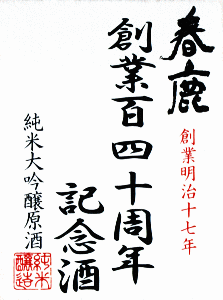 春鹿
創業明治十七年
創業百四十周年
記念酒
純米大吟醸原酒
純米
醸造